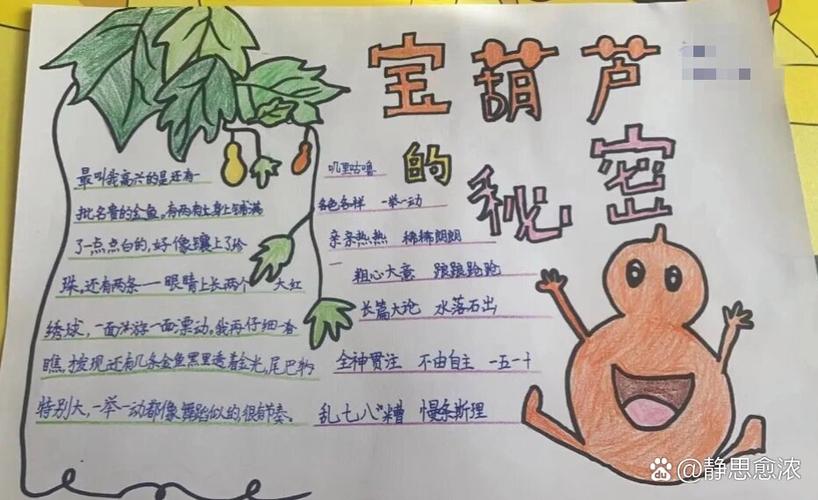 宝葫芦
的秘密
最叫我高兴的是还有一
批名贵的金鱼,有两条上身上铺满
了一点点白的,好像镶上了珍
珠,还有两条一眼睛上长两个大红
绣球,一面浮游一面漂动,我再仔细一看
瞧,发现还有几条金鱼黑里透着金光,尾巴
特别大,一举一动都像舞蹈似的很有节奏。
叽里咕噜
各色各样 一举一动
亲亲热热 稀稀朗朗
粗心大意 踉踉跄跄
长篇大论 水落石出
全神贯注 不由自主 一五一十
乱七八糟 慢条斯理
Bai du @静思愈浓